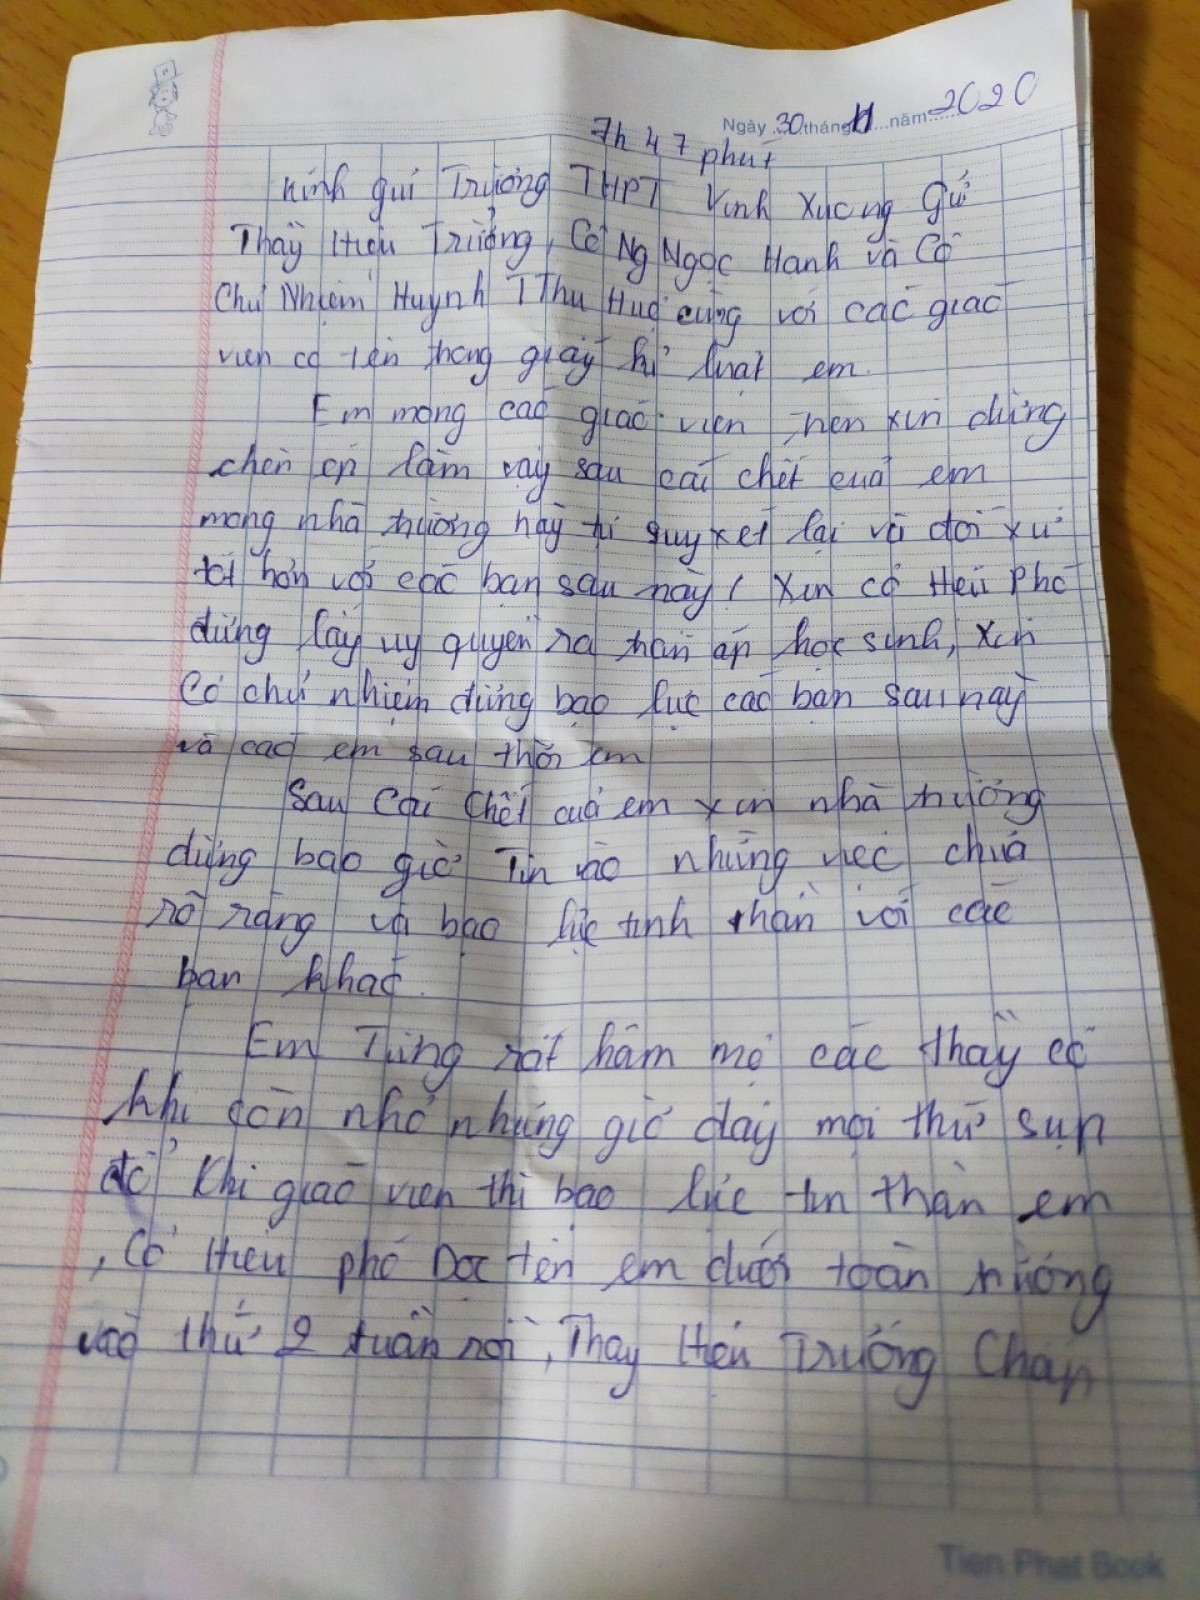 Ngày 30 tháng 11 năm 2020
7h 47 phút
Kính gửi Trường THPT Vĩnh Xương Gửi
Thầy Hiệu Trưởng, Cô Ng Ngọc Hạnh và Cô
Chủ Nhiệm Huỳnh T Thu Huệ cùng với các giáo
viên có tên trong giấy kỉ luật em.
Em mong các giáo viên trên xin đừng
chèn ép lắm vậy sau cái chết của em
mong nhà trường hãy tự suy xét lại và đối xử
tốt hơn với các bạn sau này! Xin cô Hiệu Phó
đừng lấy uy quyền ra trấn áp học sinh, xin
Cô chủ nhiệm đừng bạo lực các bạn sau này
và các em sau thời em
Sau Cái Chết của em xin nhà trường
đừng bao giờ Tin vào những việc chưa
rõ ràng và bạo lực tinh thần với các
bạn khác.
Em Từng rất hâm mộ các thầy cô
khi còn nhỏ nhưng giờ đây mọi thứ sụp
đổ Khi giáo viên thì bạo lực tin thần em
, Cô Hiệu phó Đọc tên em dưới toàn trường
vào thứ 2 tuần rồi, Thầy Hiệu Trưởng Chấp
Tien Phat Book